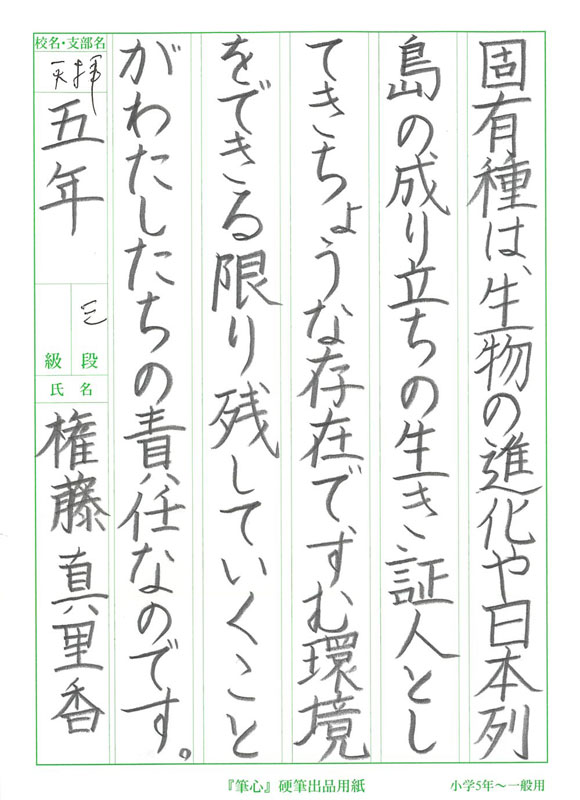 固有種は、生物の進化や日本列
島の成り立ちの生き証人とし
てきちょうな存在で、すむ環境
をできる限り残していくこと
がわたしたちの責任なのです。
校名・支部名
天拝
五年
三
級 段
氏名
権藤真里香
『筆心』硬筆出品用紙
小学5年～一般用